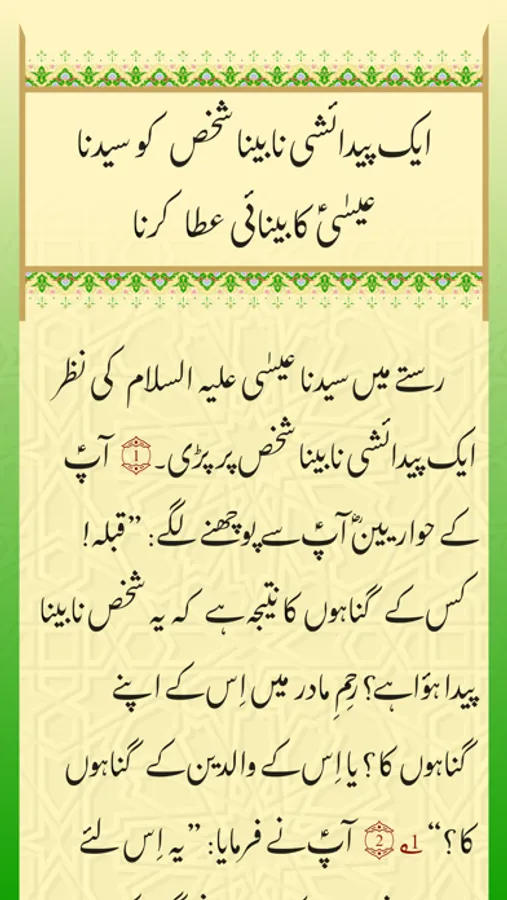 ایک پیدائشی نابینا شخص کو سیدنا
عیسٰیؑ کا بینائی عطا کرنا
رستے میں سیدنا عیسٰی علیہ السلام کی نظر
ایک پیدائشی نابینا شخص پر پڑی۔ 1 آپؑ
کے حواریینؓ آپؑ سے پوچھنے لگے: ”قبلہ!
کس کے گناہوں کا نتیجہ ہے کہ یہ شخص نابینا
پیدا ہؤا ہے؟ رحِمِ مادر میں اِس کے اپنے
گناہوں کا؟ یا اِس کے والدین کے گناہوں
کا؟“ 1؎ 2 آپؑ نے فرمایا: ”یہ اِس لئے